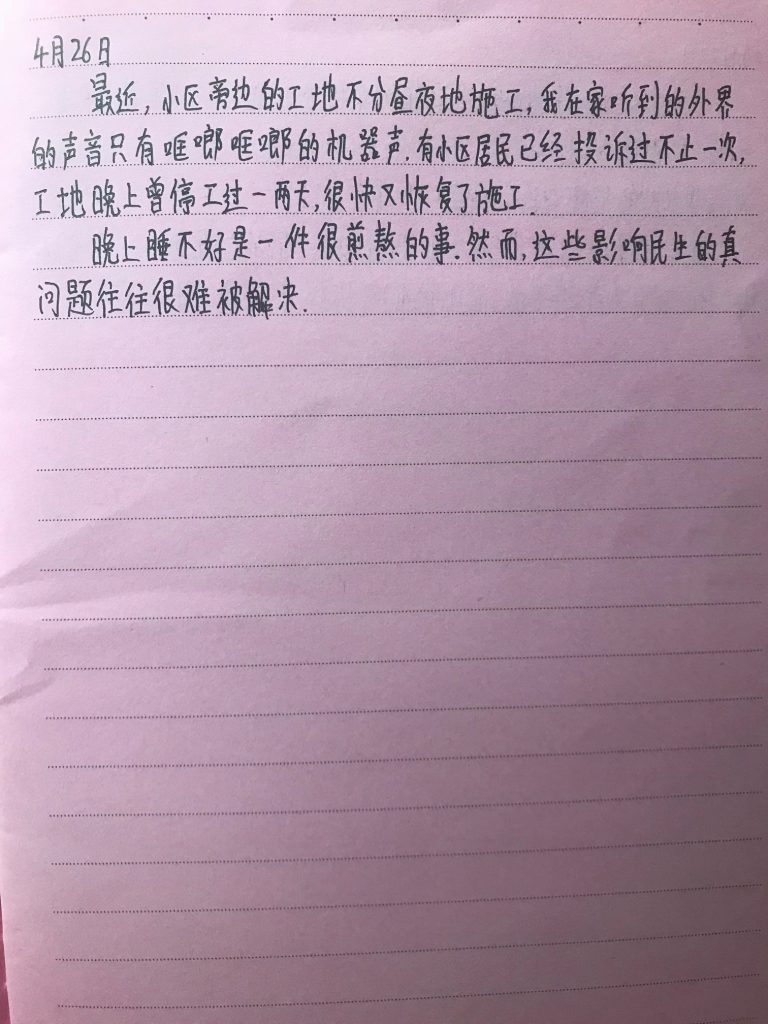 4月26日
最近,小区旁边的工地不分昼夜地施工,我在家听到的外界
的声音只有哐啷哐啷的机器声.有小区居民已经投诉过不止一次,
工地晚上曾停工过一两天,很快又恢复了施工.
晚上睡不好是一件很煎熬的事.然而,这些影响民生的真
问题往往很难被解决.